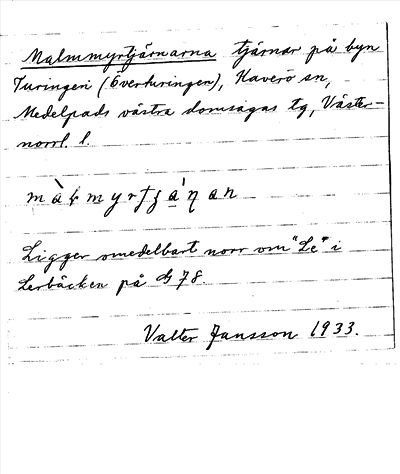 Malmmyrtjärnarna tjärnar på byn
Turingen (Överturingen), Haverö sn,
Medelpads västra domsagas tg, Väster-
norrl. l.
Ligger omedelbart norr om "Le" i
Lerbäcken på G 78.
Valter Jansson 1933.